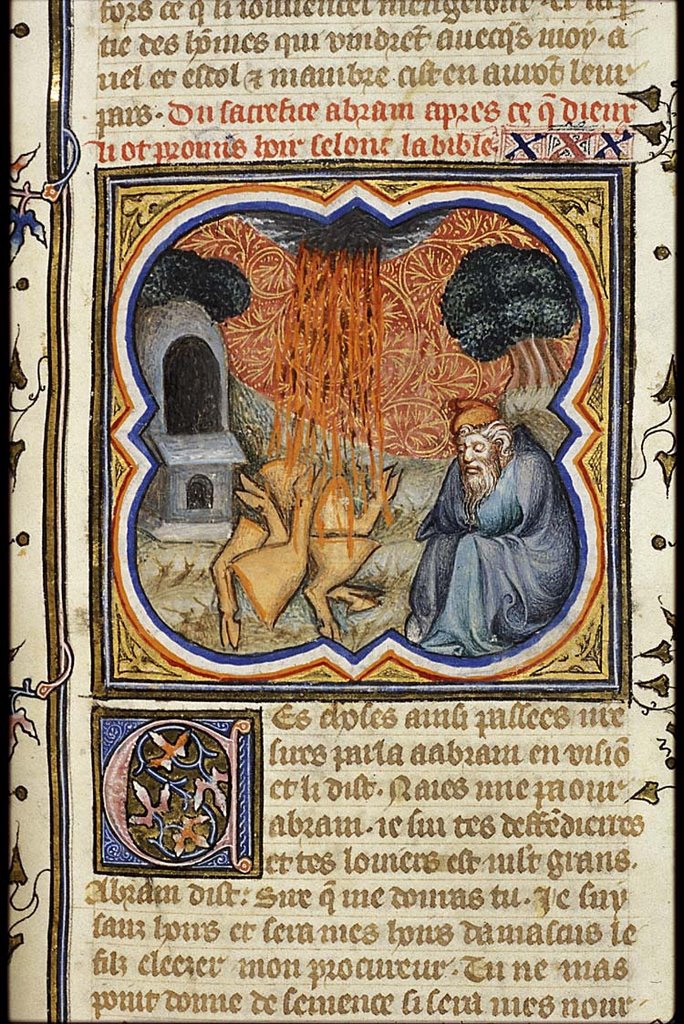 fors ce q̄ li iouuencel mengeront. et la p̄
tie des hōmes qui vindrēt auecq̄s moy. a
nel et escol ⁊ mambre cist en aurōt leur
pars. Du sacrefice abram apres ce q̄ dieux
li ot promis hoir selonc la bible.
Ces choses ainsi passees me
sires parla a abram en visiō
et li dist. Naies mie paour
abram. ie sui tes deffēdierres
et tes louiers est mlt grans.
Abram dist. Sire q̄ me donras tu. Je suy
sanz hoirs et sera mes hoirs damascus le
filz eleezer mon procureur. Tu ne mas
point donne de semence si sera mes nour